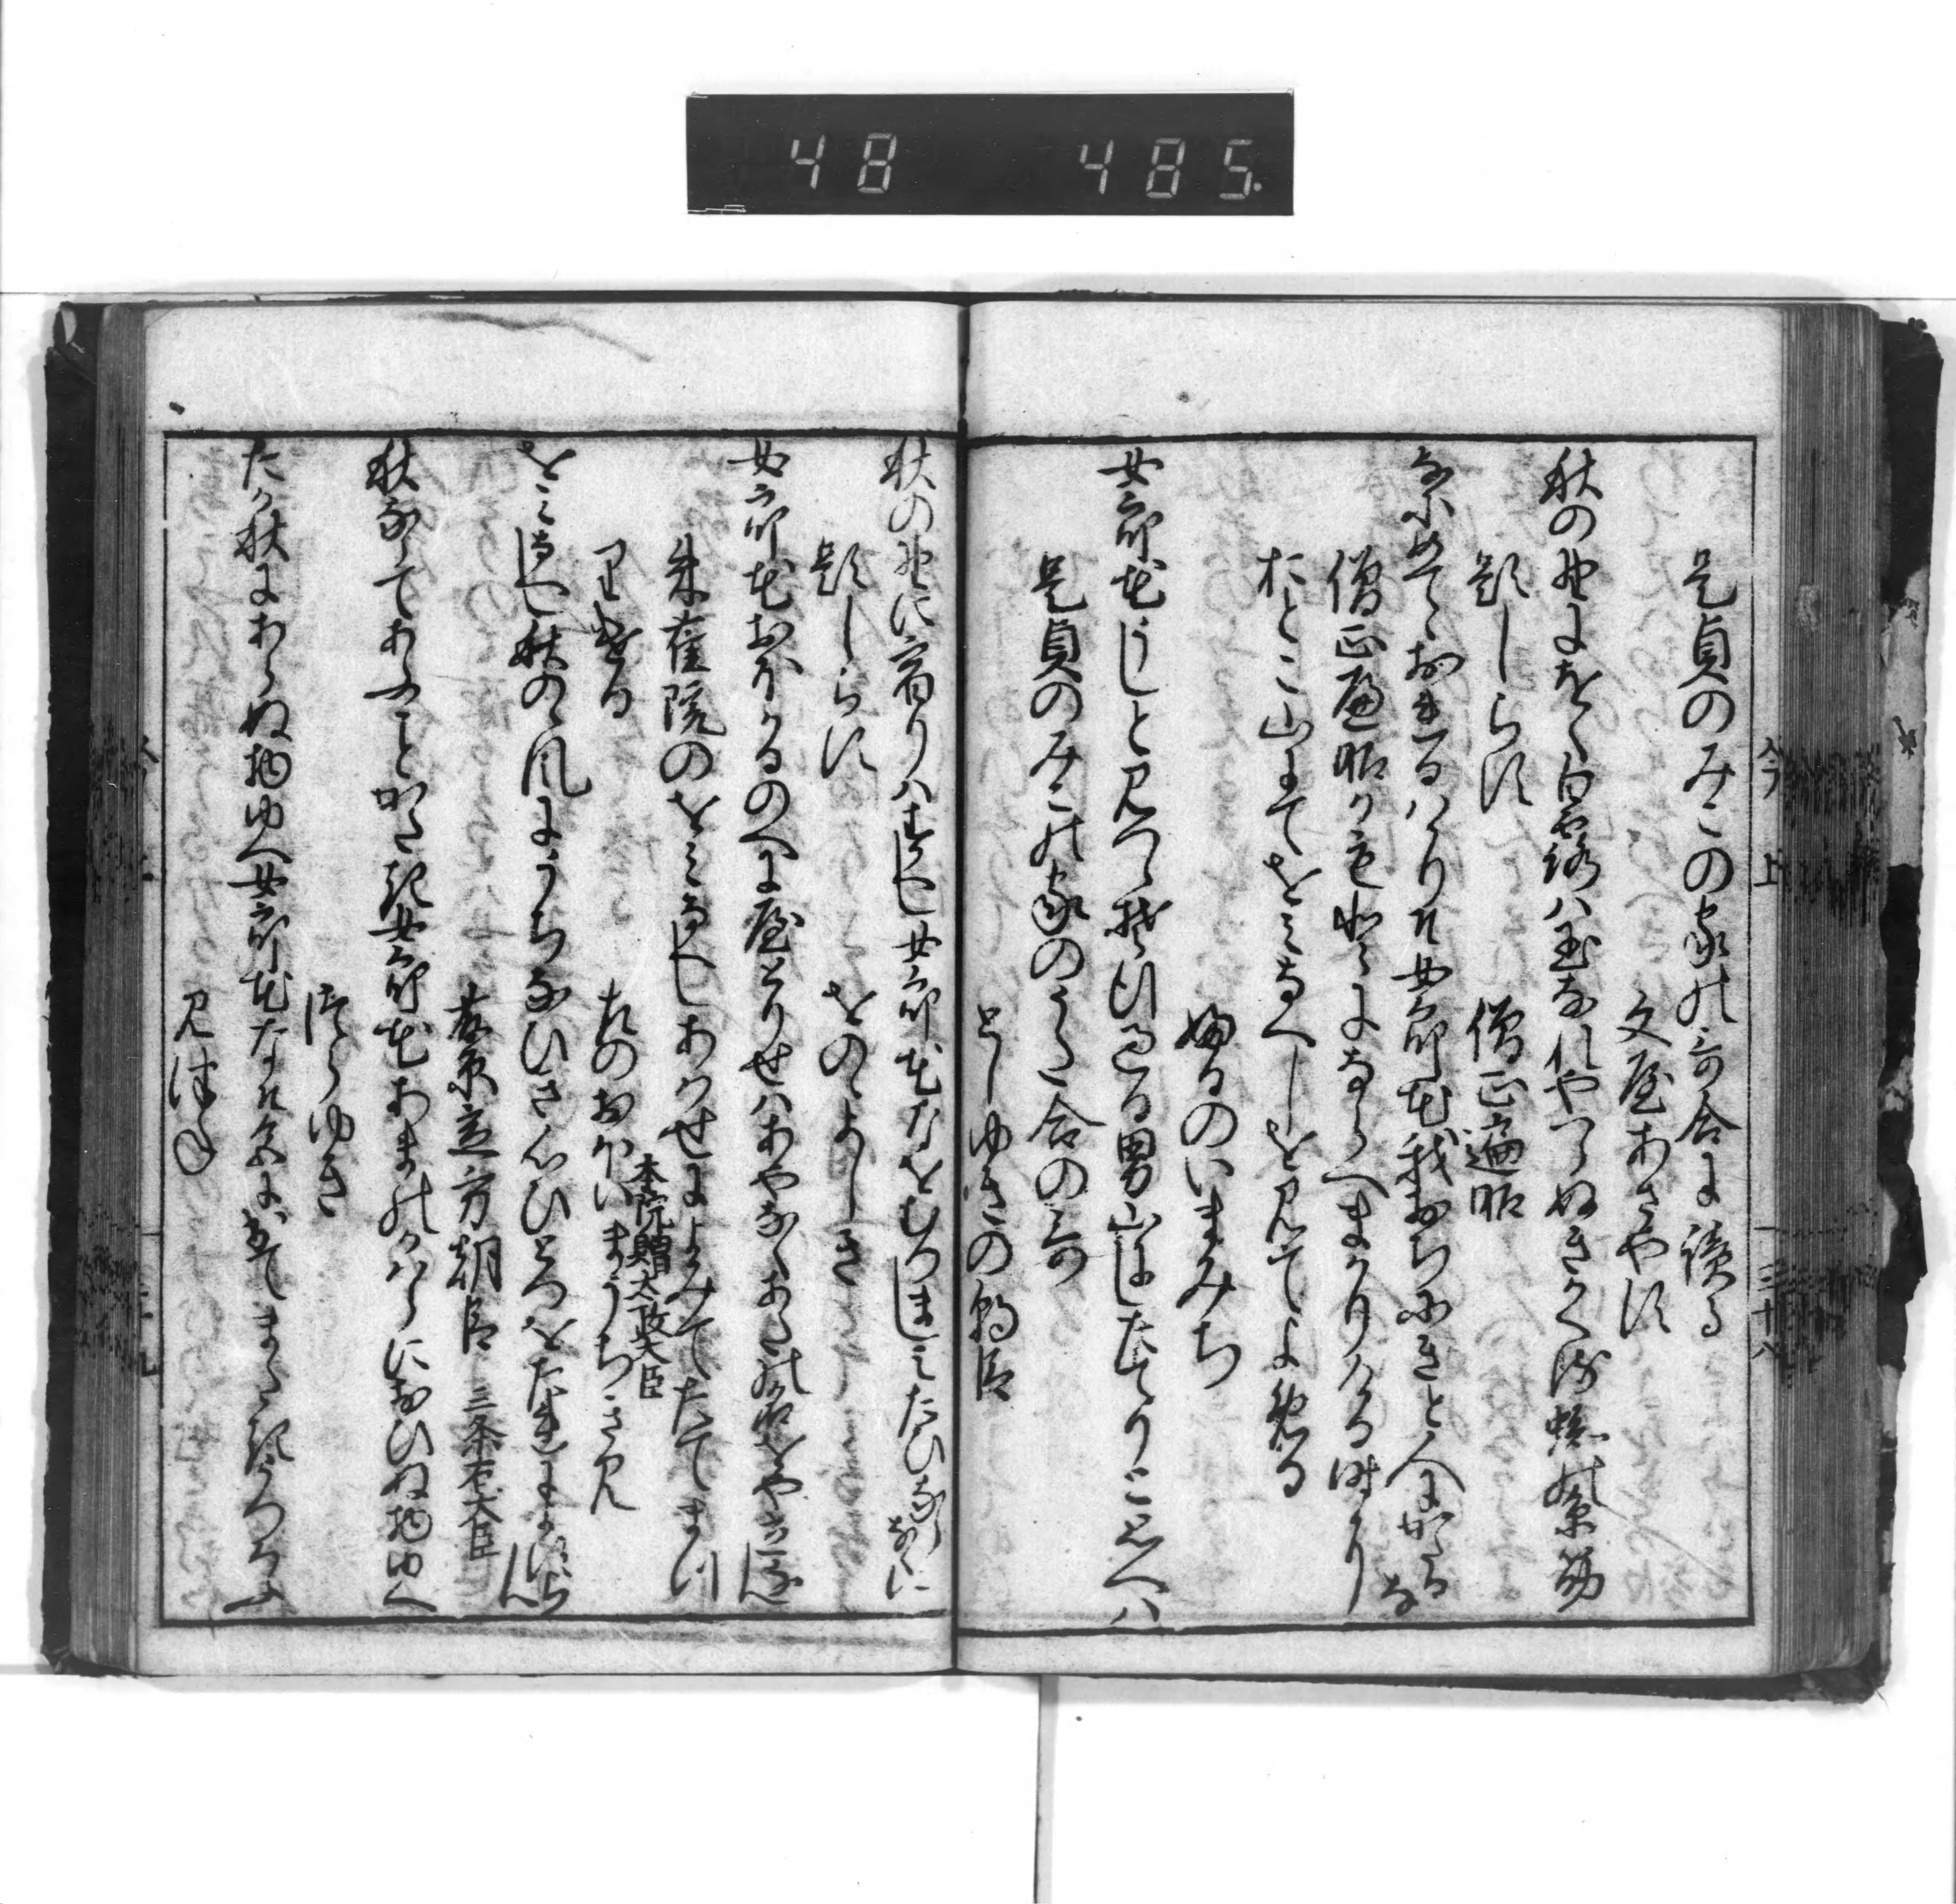 48 485.
今 上 三十八
是貞のみこの家の哥合によめる
文屋あさやす
秋の野にをく白露は玉なれやつらぬきかくる蜘の糸筋
題しらす
僧正遍昭
名にめてゝおれるはかりそ女郎花我おちにきと人にかたるな
僧正遍昭かもとにならへまかりける時に
おとこ山にてをみなへしを見てよめる
ふるのいまみち
女郎花うしと見つゝそ行過る男山にしたてりとおもへは
是貞のみこの家のうた合の哥
としゆきの朝臣
秋の野に宿りはすへし女郎花なをむつましみたひならなくに
題しらす
をのゝよしき
女郎花おほかるのへに屋とりせはあやなくあたの名をや立なん
朱雀院のをみなへしあはせによみてたてまつ
りける
左のおほいまうちきみ
本院贈太政大臣
をみなへし秋の風にうちなひき心ひとつをたれによすらん
藤原定方朝臣 三条右大臣
秋ならてあふことかたき女郎花あまの川原におひぬ物ゆへ
つらゆき
たか秋にあらぬ物ゆへ女郎花なそ色に出てまたきうつろふ
みつね